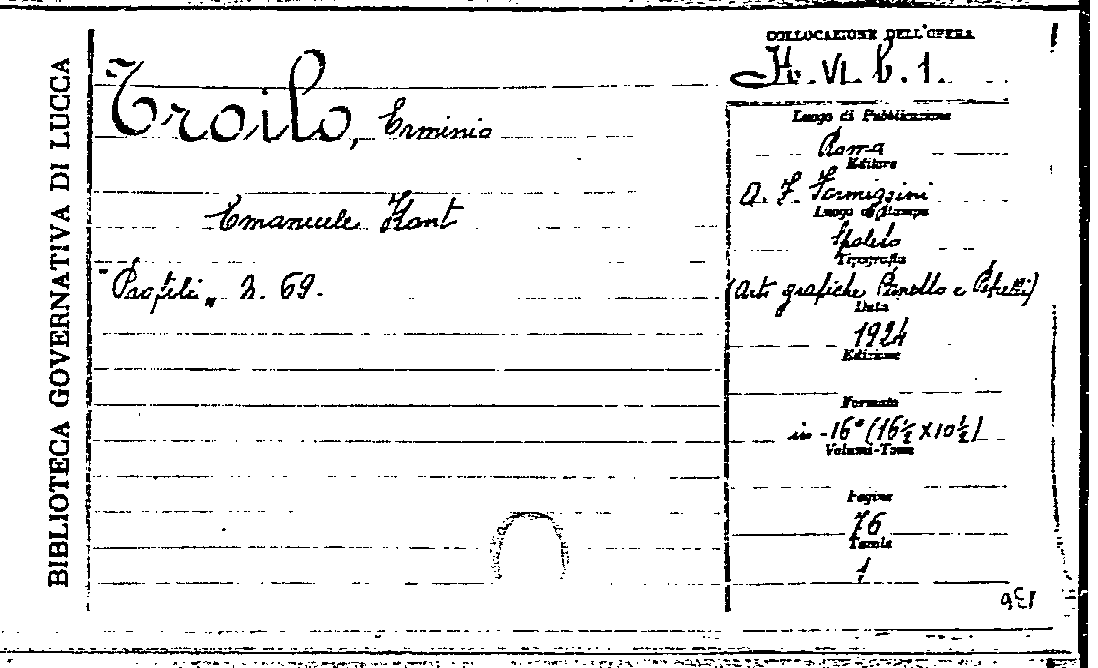 BIBLIOTECA GOVERNATIVA DI LUCCA
Troilo, Erminio
Emanuele Kant
"Profili„ n. 69.
COLLOCAZIONE DELL'OPERA
H. VI. b. 1.
Luogo di Pubblicazione
Roma
Editore
A. F. Formiggini
Luogo di Stampa
Spoleto
Tipografia
(Arti grafiche Panetto e Petrelli)
Data
1924
Edizione
Formato
in -16° (16½ x 10½)
Volumi-Tomo
Pagine
76
Tavole
1
136